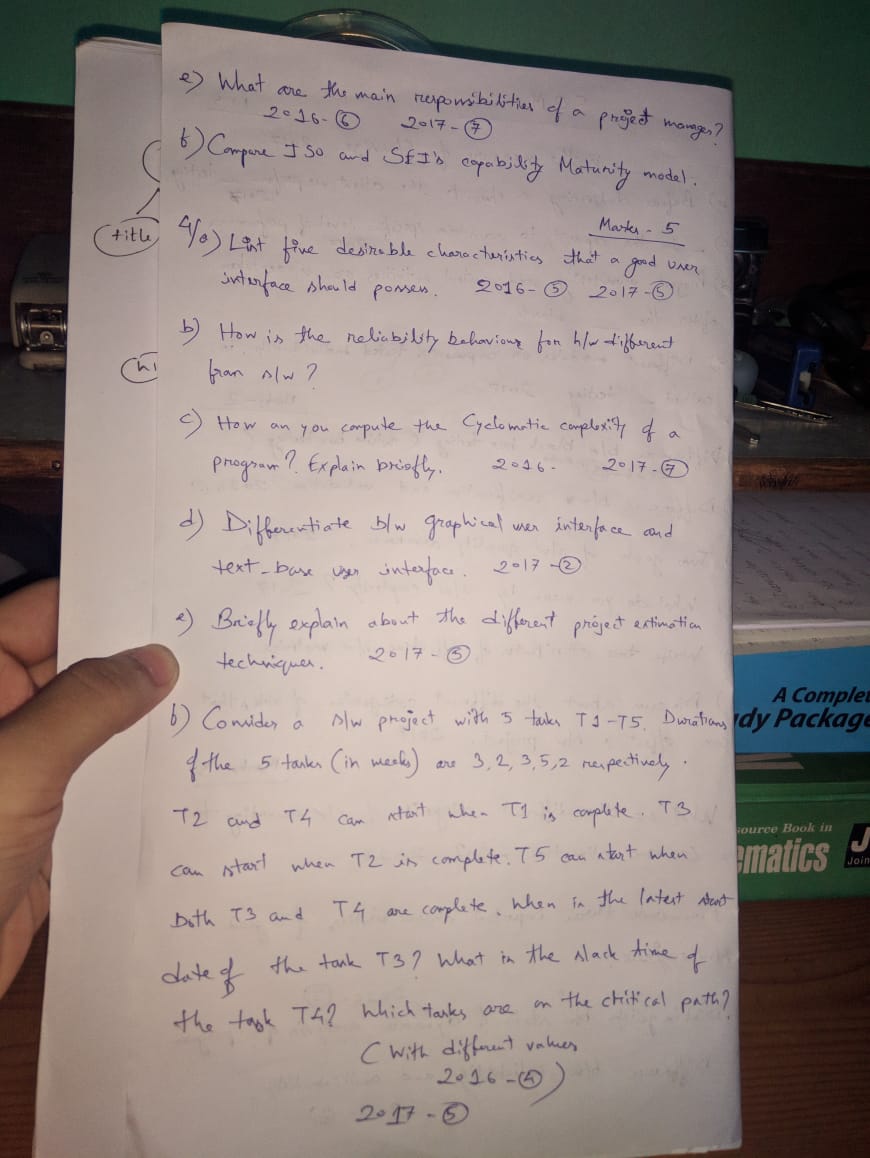 e) What are the main responsibilities of a project manager?
2016-⑥ 2017-⑦
f) Compare ISO and SEI's capability Maturity model.
Marks - 5
4/a) List five desirable characteristics that a good user
interface should posses. 2016-⑤ 2017-⑤
b) How is the reliability behaviour for h/w different
from s/w ?
c) How an you compute the Cyclomatic complexity of a
program? Explain briefly. 2016- 2017-⑦
d) Differentiate b/w graphical user interface and
text-base user interface. 2017-②
e) Briefly explain about the different project estimation
techniques. 2017-⑤
f) Consider a s/w project with 5 tasks T1-T5. Durations
of the 5 tasks (in weeks) are 3,2,3,5,2 respectively.
T2 and T4 can start when T1 is complete. T3
can start when T2 is complete. T5 can start when
both T3 and T4 are complete. When is the latest start
date of the task T3? What is the slack time of
the task T4? Which tasks are on the critical path?
(With different values
2016-④)
2017-⑤
title
hi
A Complet
dy Package
source Book in
ematics
J
Join